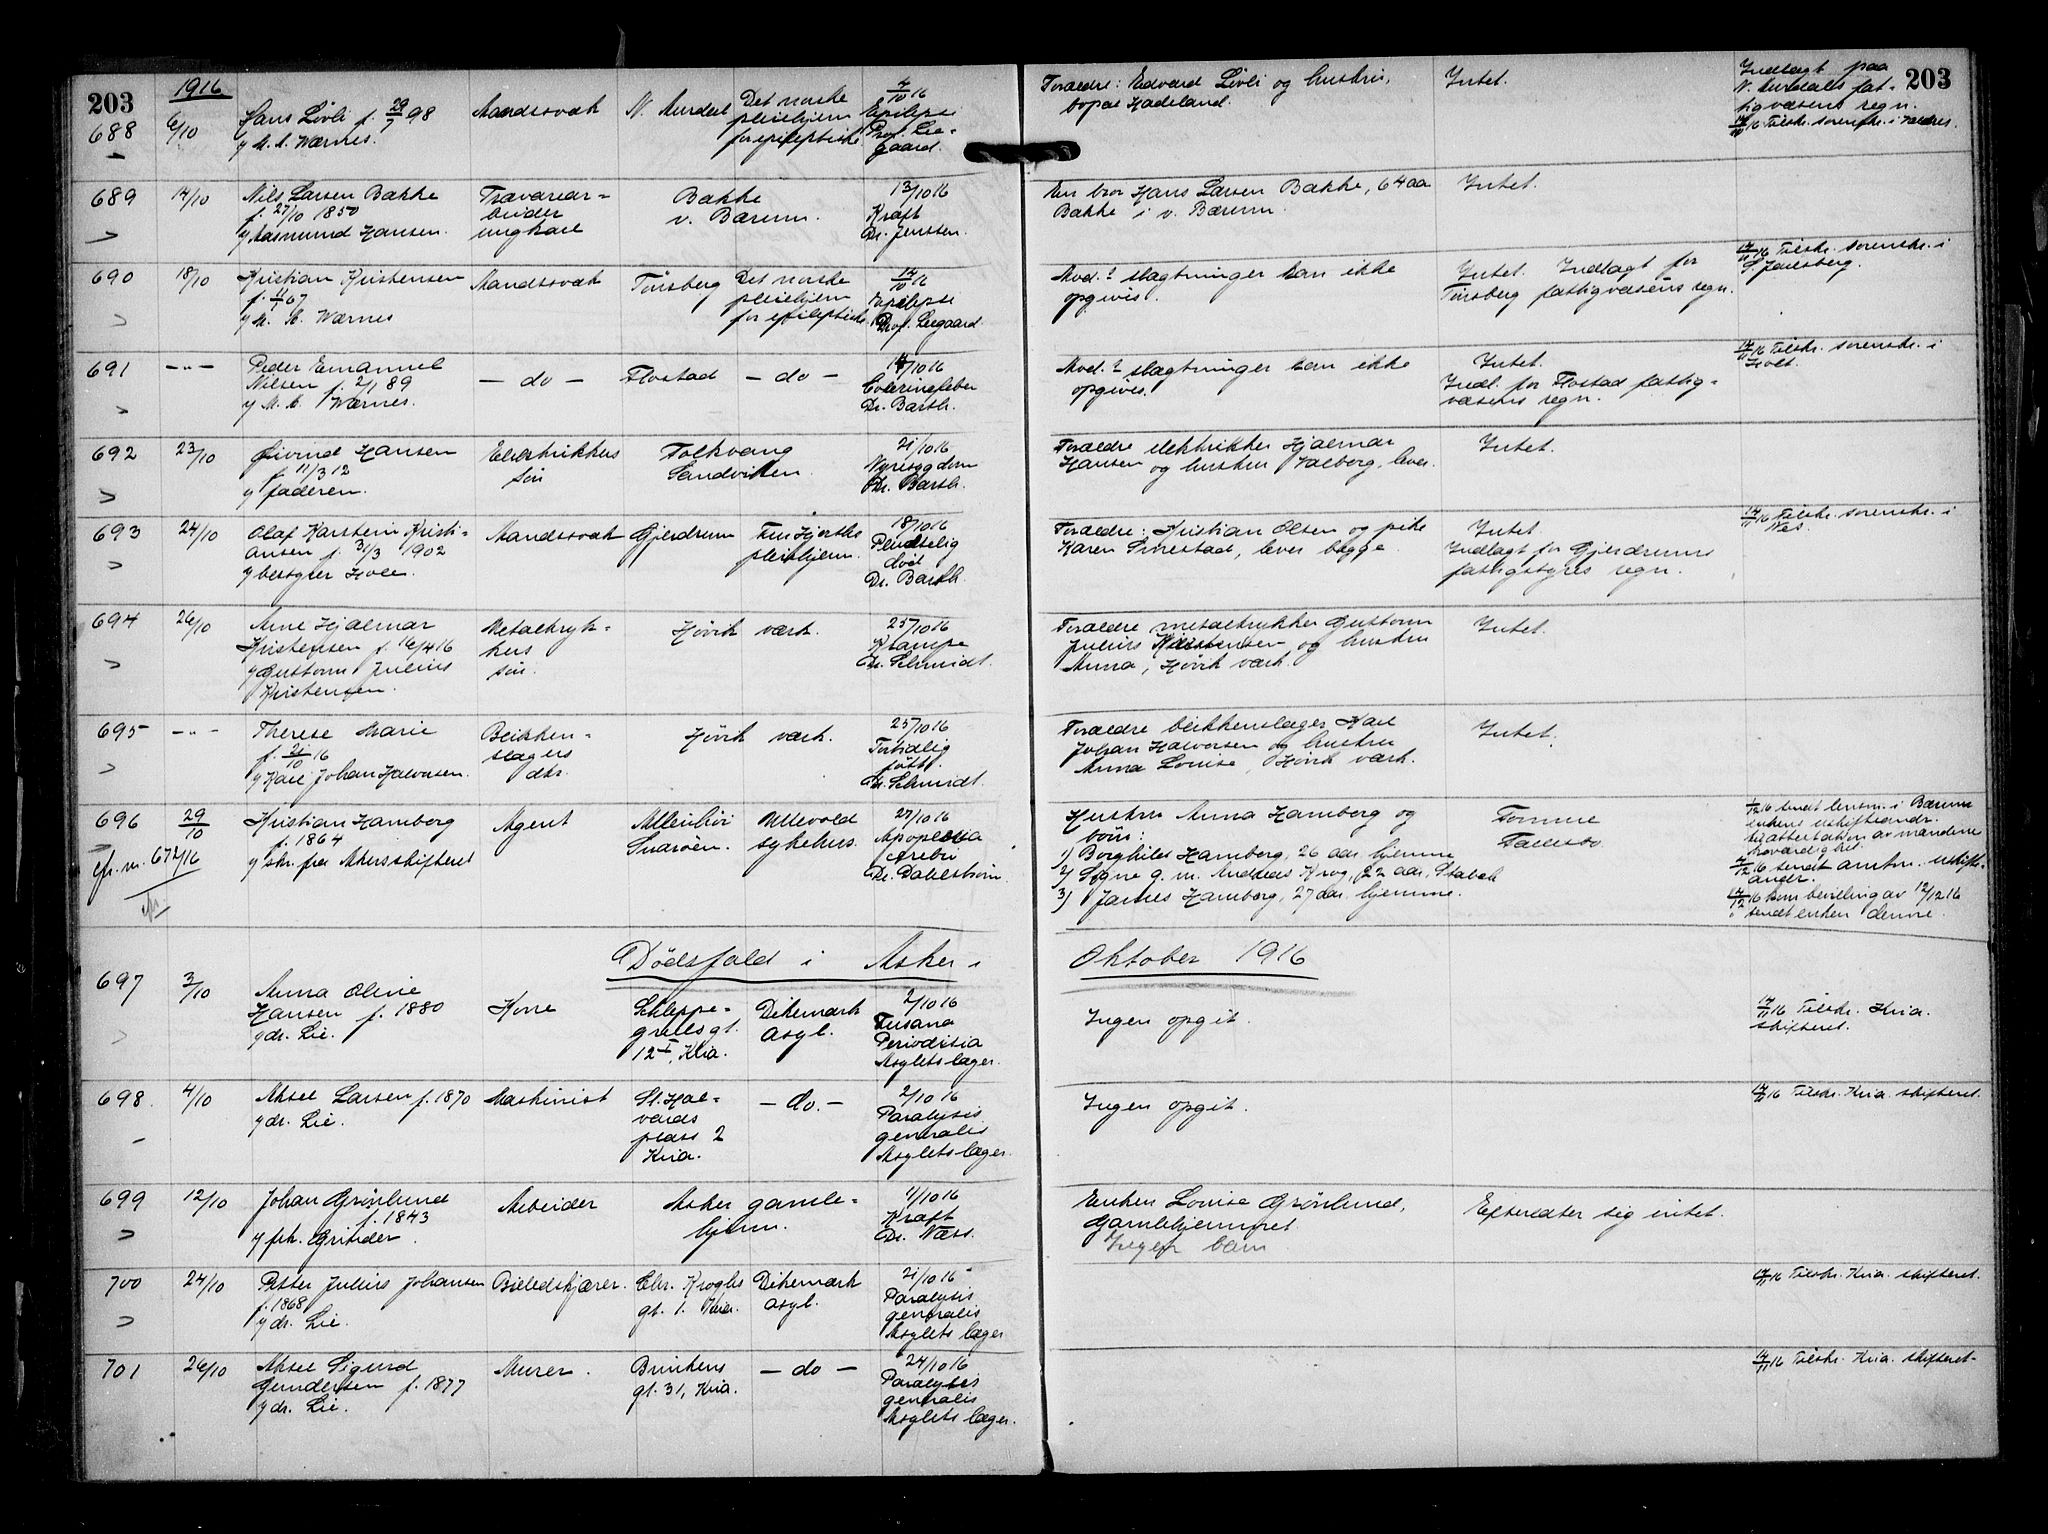 203
1916
688
6/10
Hans Lövli f. 29/7 98
v/ M. A. Wærnes.
Aandssvak
N. Aurdal
Det norske
pleiehjem
for epileptiske
4/10 16
Epilepsi
Prof. Lee-
gaard.
Foræeldre: Edvard Lövli og hustru,
bopæl Hadeland.
Intet.
Indlagt paa
N. Aurdals fat-
tigvæsens regn.
14/11 16 Tilskr. sorenskr. i Valdres.
203
689
14/10
Nils Larsen Bakke
f. 27/10 1850
v/ Aasmund Hansen.
Trævarear-
beider
ungkarl
Bakke
v. Bærum.
13/10 16
Kræft
Dr. Jenssen.
En bror Hans Larsen Bakke, 64 aar
Bakke i v. Bærum.
Intet.
690
18/10
Kristian Kristensen
f. 4/1 67
v/ M. A. Wærnes
Aandssvak
Tönsberg
Det norske
pleiehjem
for epileptiske
14/10 16
Epilepsi
Prof. Leegaard.
Mod.? slagtninger kan ikke
opgives.
Intet. Indlagt for
Tönsberg fattigvæsens regn.
14/11 16 Tilskr. sorenskr. i
S. Jarlsberg.
691
-"-
Peder Emanuel
Nilsen f. 2/1 89
v/ M. A. Wærnes.
- do -
Flostad
- do -
14/10 16
Dr. Barth.
Mod.? slagtninger kan ikke
opgives.
Intet.
Indl. for Flostad fattig-
væsens regn.
14/11 16 Tilskr. sorenskr. i
Holt.
692
23/10
Øivind Hansen
f. 11/3 12
v/ faderen.
Elektrikkers
sön
Folkvang
Sandviken
21/10 16
Nyresygdom
Dr. Barth.
Forældre elektrikker Hjalmar
Hansen og hustru Valborg, lever.
Intet.
693
24/10
Olaf Karstein Kristi-
ansen f. 31/3 1902
v/ bestyrer Hole.
Aandssvak
Gjerdrum
Fru Hjorths
pleiehjem.
18/10 16
Pludselig
död
Dr. Barth.
Forældre: Kristian Olsen og pike
Karen Smestad, lever begge.
Intet
Indlagt for Gjerdrums
fattigstyres regn.
14/11 16 Tilskr. sorenskr. i
Nes.
694
26/10
Arne Hjalmar
Kristensen f. 16/4 16
v/ Gustav Julius
Kristensen.
Metaltryk-
kers
sön.
Hövik værk.
25/10 16
Krampe
Dr. Schmidt.
Forældre metaltrykker Gustav
Julius Kristensen og hustru
Anna, Hövik værk.
Intet.
695
-"-
Therese Marie
f. 21/10 16
v/ Karl Johan Halvorsen.
Blikken-
slagers
dtr.
Hövik værk.
25/10 16
Fortidlig
född.
Dr. Schmidt.
Forældre blikkenslager Karl
Johan Halvorsen og hustru
Anna Louise, Hövik værk.
Intet.
696
29/10
cfr. nr. 672/16
Kristian Hamborg
f. 1864
v/ skr. fra Akers skifteret
Agent
Snarøen.
Ullevold
sykehus.
27/10 16
Apoplexia
cerebri
Dr. Dahlström.
Hustru Anna Hamborg og
börn:
1) Borghild Hamborg, 26 aar, hjemme
2) Signe g. m. Andreas Krog, 22 aar, Stabæk
3) James Hamborg, 27 aar, hjemme.
Formue
Fællesbo
1/12 16 sendt lensm. i Bærum
enkens uskifteandr.
til attestation av mandens
4/12 16 sendt amtm. uskifte-
andr.
14/12 16 kom bevilling av 12/12 16
sendt enken denne.
Dödsfald i Asker i Oktober 1916
697
3/10
Anna Oline
Hansen f. 1880
v/ dr. Lie.
Kone
Schleppe-
grellsgt.
12 I, Kria.
Dikemark
asyl.
2/10 16
Periodisia
Asylets læge.
Ingen opgit.
14/11 16 Tilskr. Kria.
skifteret.
698.
4/10
Aksel Larsen f. 1870
v/ dr. Lie.
Maskinist
St. Hal-
vards
plass 2
Kria.
- do. -
2/10 16
Paralysis
generalis
Asylets læge.
Ingen opgit.
14/11 16 Tilskr. Kria. skifteret.
699
12/10
Johan Grönlund
f. 1843
v/ frk. Gritider.
Arbeider
Asker gamle-
hjem.
11/10 16
Kræft
Dr. Næss.
Enken Louise Grönlund,
Gamlehjemmet
Ingen barn
Efterlater sig intet.
700
24/10
Peter Julius Johansen
f. 1868
v/ dr. Lie.
Billedskjærer.
Chr. Kroghs
gt. 1. Kria.
Dikemark
asyl.
21/10 16
Paralysis
generalis
Asylets læge
14/11 16 Tilskr. Kria. skifteret.
701
26/10
Aksel Sigurd
Gundersen f. 1877
v/ dr. Lie.
Murer.
Brinkens
gt. 31, Kria.
- do -
24/10 16
Paralysis
generalis
Asylets læge.
14/11 16 Tilskr. Kria. skifteret.